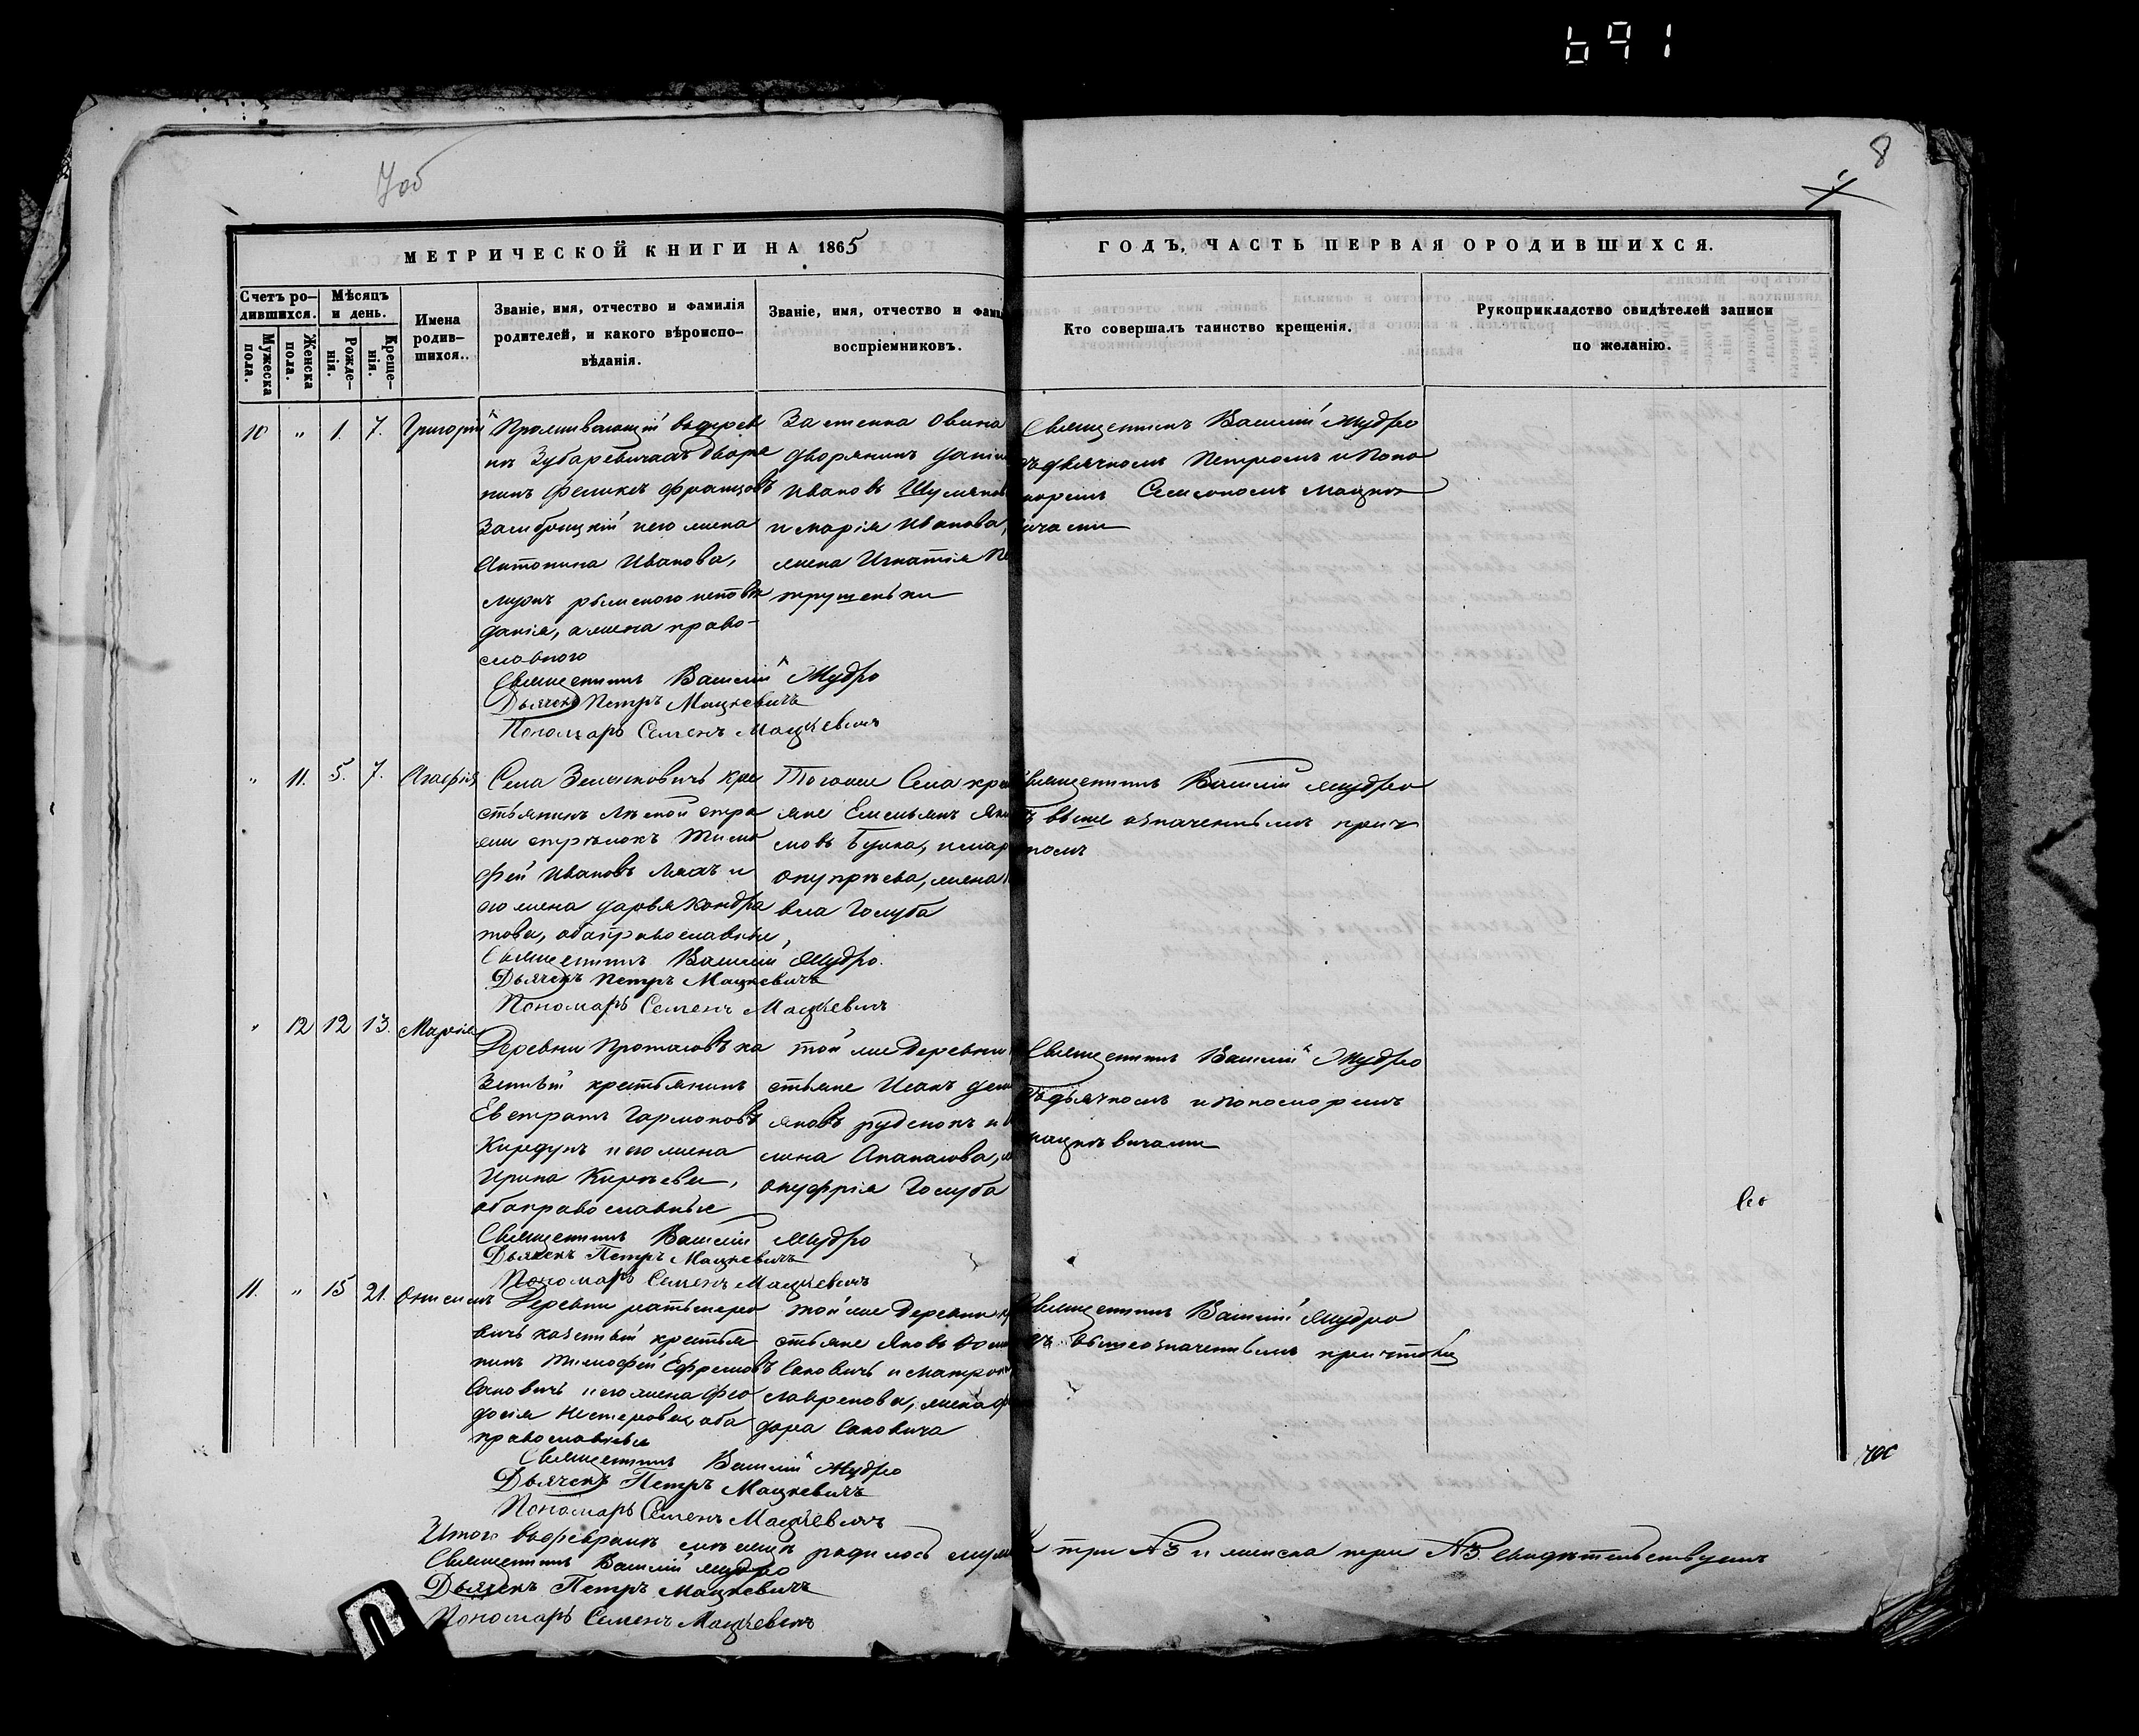 691
7об
8
МЕТРИЧЕСКОЙ КНИГИ НА 1865
ГОДЪ, ЧАСТЬ ПЕРВАЯ О РОДИВШИХСЯ.
Счетъ ро-
дившихся.
Мужеска
пола.
Женска
пола.
Мѣсяцъ
и день.
Рожде-
нія.
Креще-
нія.
Имена
родив-
шихся.
Званіе, имя, отчество и фамилія
родителей, и какого вѣроиспо-
вѣданія.
Званіе, имя, отчество и фами
воспріемниковъ.
Кто совершалъ таинство крещенія.
Рукоприкладство свидѣтелей записи
по желанію.
10 " 1. 7. Григорій
Проживающій въ дерев
нѣ Зубаревичахъ дворя
нинъ Феликсъ Францовъ
и его жена
Антонина Иванова,
мужъ римского исповѣ
данія, а жена право-
славного
Священникъ Василій Мудро
Дьячекъ Петръ Мацкевичъ
Пономарь Семенъ Мацкевичъ
Застенка Овина
дворянинъ Даніи
Ивановъ
и Марія Иванова,
жена Игнатія Пе
трушеньки
Священникъ Василій Мудро
съ дьячкомъ Петромъ и Поно
моремъ Семеономъ Мацке
вичами
" 11. 5. 7. Агафія
Села Зеленковичъ кре
стьянинъ лѣсной стра
жи стрѣлокъ Тимо
фей Ивановъ Ляхъ и
его жена Дарья Кондра
това, оба православные,
Священникъ Василій Мудро.
Дьячекъ Петръ Мацкевичъ
Пономарь Семенъ Мацкевичъ
Того же Села крест
яне Емельянъ Яки
мовъ Булка, и Мар
Онупрѣева, жена
Голуба
Священникъ Василій Мудро
съ выше означеннымъ прич
томъ
" 12 12 13. Марія
Деревни Протасовъ ка
зенный крестьянинъ
Евстратъ Гармоновъ
и его жена
Ирина Кирѣева,
оба православные
Священникъ Василій Мудро
Дьячекъ Петръ Мацкевичъ
Пономарь Семенъ Мацкевичъ
той же Деревни
стьяне Исакъ Дем
яновъ Рудсконъ и
Апанасова,
Онуфрія Голуба
Священникъ Василій Мудро
съ дьячкомъ и пономоремъ
мацкевичами
11. " 15 21. Онисимъ
Деревни
вичъ казенный крестья
нинъ Тимофей Ефремовъ
Саковичъ и его жена Фео
досія Нестерова, оба
православные
Священникъ Василій Мудро
Дьячекъ Петръ Мацкевичъ
Пономарь Семенъ Мацкевичъ
той же Деревни кр
стьяне Яковъ
Саковичъ и Матрона
Лавренова, жена Фе
дора Саковича
Священникъ Василій Мудро
съ вышеозначеннымъ причтомъ
Итого въ феврали мѣсяцѣ родилось муже
ска три №3 и женска три №3. Свидѣтельствуемъ
Священникъ Василій Мудро
Дьячекъ Петръ Мацкевичъ
Пономарь Семенъ Мацкевичъ